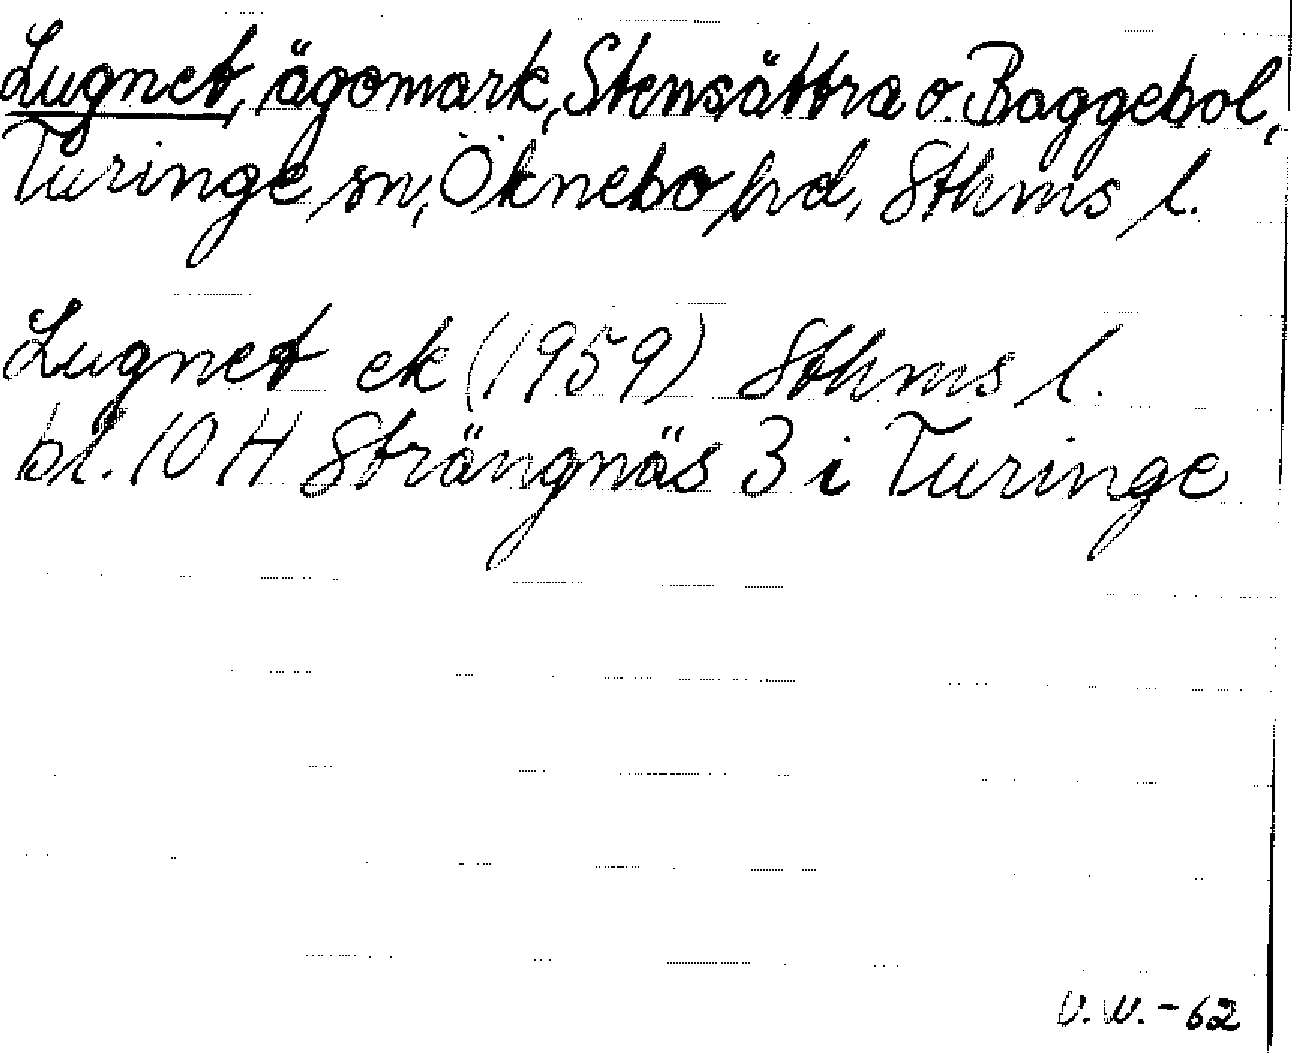 Lugnet, ägomark, Stensättra o. Baggebol,
Turinge sn, Öknebo hd, Sthms l.
Lugnet ek (1959) Sthms l.
bl. 10 H Strängnäs 3 i Turinge
V.W.-62